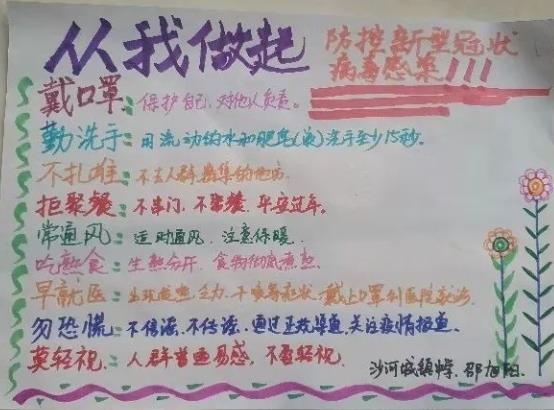 从我做起
防控新型冠状
病毒感染!!!
戴口罩:保护自己,对他人负责。
勤洗手:用流动的水和肥皂(液)洗手至少15秒。
不扎堆:不去人群密集的地方
拒聚餐:不串门、不聚餐、平安过年。
常通风:适时通风,注意保暖.
吃熟食:生熟分开,食物彻底煮熟.
早就医:出现发热、乏力、干咳等症状,戴上口罩到医院就诊.
勿恐慌:不信谣,不传谣,通过正规渠道,关注疫情报道.
莫轻视:人群普遍易感,不要轻视.
沙河城镇中学.邵旭阳.